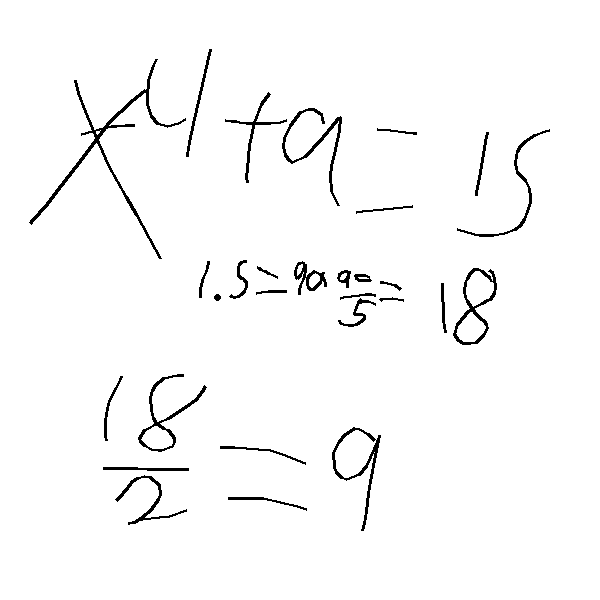 x⁴+9=15
1.5=90 90/5=18
18/2=9